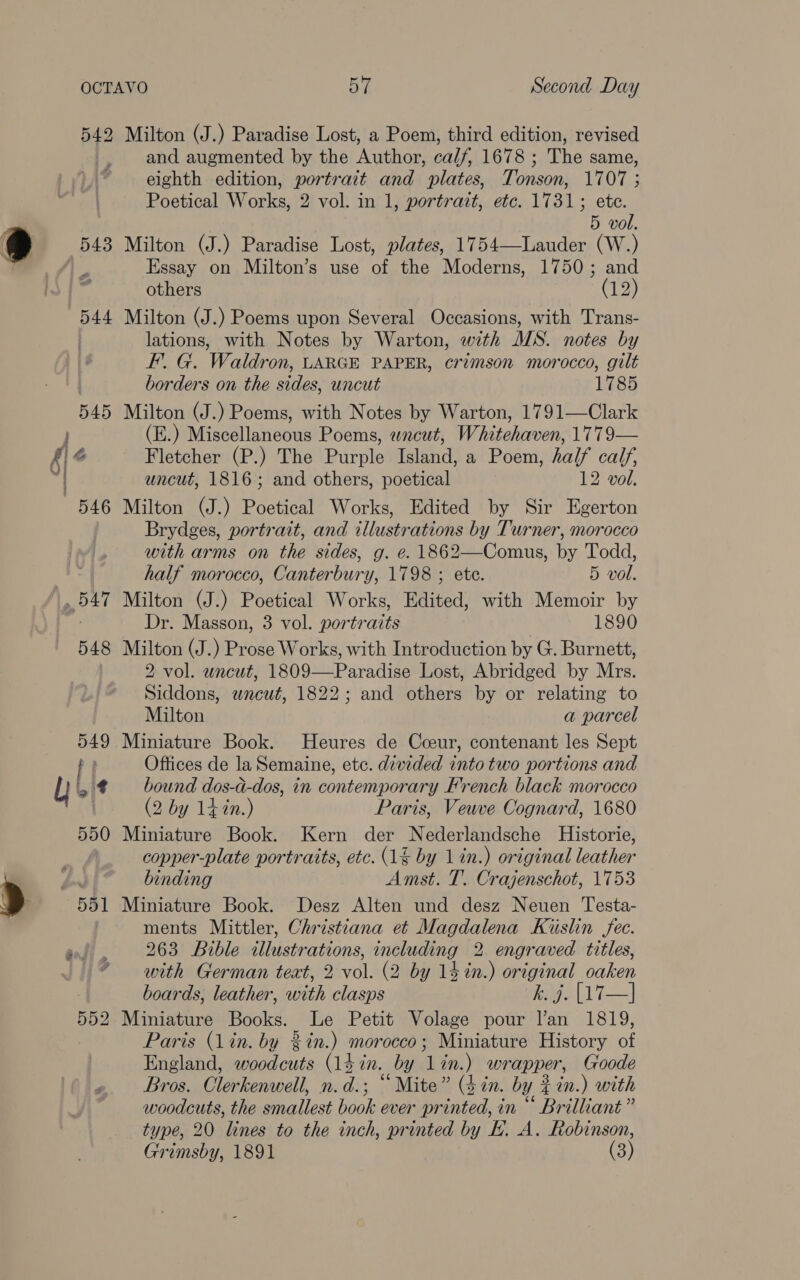 OCTAVO 57 Second Day
542 Milton (J.) Paradise Lost, a Poem, third edition, revised
and augmented by the Author, calf, 1678 ; The same,
eighth edition, portrait and plates, Tonson, 1707 ;
Poetical Works, 2 vol. in 1, portrait, etc. 1731; etc.
5 vol.
543 Milton (J.) Paradise Lost, plates, 1754—Lauder (W.)
Essay on Milton's use of the Moderns, 1750; and
others (12)
544 Milton (J.) Poems upon Several Occasions, with Trans-
lations, with Notes by Warton, with MS. notes by
F. G. Waldron, LARGE PAPER, crimson morocco, gilt
borders on the sides, uncut 1785
545 Milton (J.) Poems, with Notes by Warton, 1791—Clark
(E.) Miscellaneous Poems, uncut, Whitehaven, 1779—
Fletcher (P.) The Purple Island, a Poem, half calf,
uncut, 1816; and others, poetical 12 vol.
546 Milton (J.) Poetical Works, Edited by Sir Egerton
Brydges, portrait, and illustrations by Turner, morocco
with arms on the sides, g. e. 1862—Comus, by Todd,
half morocco, Canterbury, 1798 ; etc. 5 vol.
547 Milton (J.) Poetical Works, Edited, with Memoir by
Dr. Masson, 3 vol. portraits 1890
548 Milton (J.) Prose Works, with Introduction by G. Burnett,
2 vol. uncut, 1809—Paradise Lost, Abridged by Mrs.
Siddons, uncut, 1822; and others by or relating to
Milton a parcel
549 Miniature Book. Heures de Cœur, contenant les Sept
Offices de la Semaine, etc. divided into two portions and
bound dos-à-dos, in contemporary French black morocco
(2 by 1¼ in.) Paris, Veuve Cognard, 1680
550 Miniature Book. Kern der Nederlandsche Historie,
copper-plate portraits, etc. (1⅝ by 1 in.) original leather
binding Amst. T. Crajenschot, 1753
551 Miniature Book. Desz Alten und desz Neuen Testa-
ments Mittler, Christiana et Magdalena Küslin fec.
263 Bible illustrations, including 2 engraved titles,
with German text, 2 vol. (2 by 1½ in.) original oaken
boards, leather, with clasps k. j. [17—]
552 Miniature Books. Le Petit Volage pour l'an 1819,
Paris (1 in. by in.) morocco; Miniature History of
England, woodcuts (1½ in. by 1 in.) wrapper, Goode
Bros. Clerkenwell, n.d.; "Mite" ( in. by in.) with
woodcuts, the smallest book ever printed, in "Brilliant"
type, 20 lines to the inch, printed by E. A. Robinson,
Grimsby, 1891 (3)